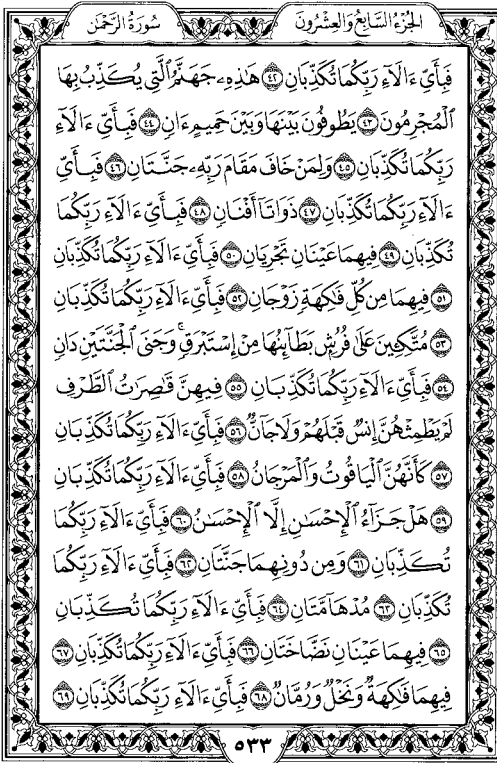 الجزء السابع والعشرون
سورة الرحمن
فَبِأَيِّ ءَالَآءِ رَبِّكُمَا تُكَذِّبَانِ ٤٢ هَٰذِهِۦ جَهَنَّمُ ٱلَّتِي يُكَذِّبُ بِهَا
ٱلْمُجْرِمُونَ ٤٣ يَطُوفُونَ بَيْنَهَا وَبَيْنَ حَمِيمٍ ءَانٍ ٤٤ فَبِأَيِّ ءَالَآءِ
رَبِّكُمَا تُكَذِّبَانِ ٤٥ وَلِمَنْ خَافَ مَقَامَ رَبِّهِۦ جَنَّتَانِ ٤٦ فَبِأَيِّ
ءَالَآءِ رَبِّكُمَا تُكَذِّبَانِ ٤٧ ذَوَاتَآ أَفْنَانٍ ٤٨ فَبِأَيِّ ءَالَآءِ رَبِّكُمَا
تُكَذِّبَانِ ٤٩ فِيهِمَا عَيْنَانِ تَجْرِيَانِ ٥٠ فَبِأَيِّ ءَالَآءِ رَبِّكُمَا تُكَذِّبَانِ
٥١ فِيهِمَا مِن كُلِّ فَٰكِهَةٍ زَوْجَانِ ٥٢ فَبِأَيِّ ءَالَآءِ رَبِّكُمَا تُكَذِّبَانِ
٥٣ مُتَّكِـِٔينَ عَلَىٰ فُرُشٍۭ بَطَآئِنُهَا مِنْ إِسْتَبْرَقٍ ۚ وَجَنَى ٱلْجَنَّتَيْنِ دَانٍ
٥٤ فَبِأَيِّ ءَالَآءِ رَبِّكُمَا تُكَذِّبَانِ ٥٥ فِيهِنَّ قَٰصِرَٰتُ ٱلطَّرْفِ
لَمْ يَطْمِثْهُنَّ إِنسٌ قَبْلَهُمْ وَلَا جَآنٌّ ٥٦ فَبِأَيِّ ءَالَآءِ رَبِّكُمَا تُكَذِّبَانِ
٥٧ كَأَنَّهُنَّ ٱلْيَاقُوتُ وَٱلْمَرْجَانُ ٥٨ فَبِأَيِّ ءَالَآءِ رَبِّكُمَا تُكَذِّبَانِ
٥٩ هَلْ جَزَآءُ ٱلْإِحْسَٰنِ إِلَّا ٱلْإِحْسَٰنُ ٦٠ فَبِأَيِّ ءَالَآءِ رَبِّكُمَا
تُكَذِّبَانِ ٦١ وَمِن دُونِهِمَا جَنَّتَانِ ٦٢ فَبِأَيِّ ءَالَآءِ رَبِّكُمَا
تُكَذِّبَانِ ٦٣ مُدْهَآمَّتَانِ ٦٤ فَبِأَيِّ ءَالَآءِ رَبِّكُمَا تُكَذِّبَانِ
٦٥ فِيهِمَا عَيْنَانِ نَضَّاخَتَانِ ٦٦ فَبِأَيِّ ءَالَآءِ رَبِّكُمَا تُكَذِّبَانِ ٦٧
فِيهِمَا فَٰكِهَةٌ وَنَخْلٌ وَرُمَّانٌ ٦٨ فَبِأَيِّ ءَالَآءِ رَبِّكُمَا تُكَذِّبَانِ ٦٩
٥٣٣